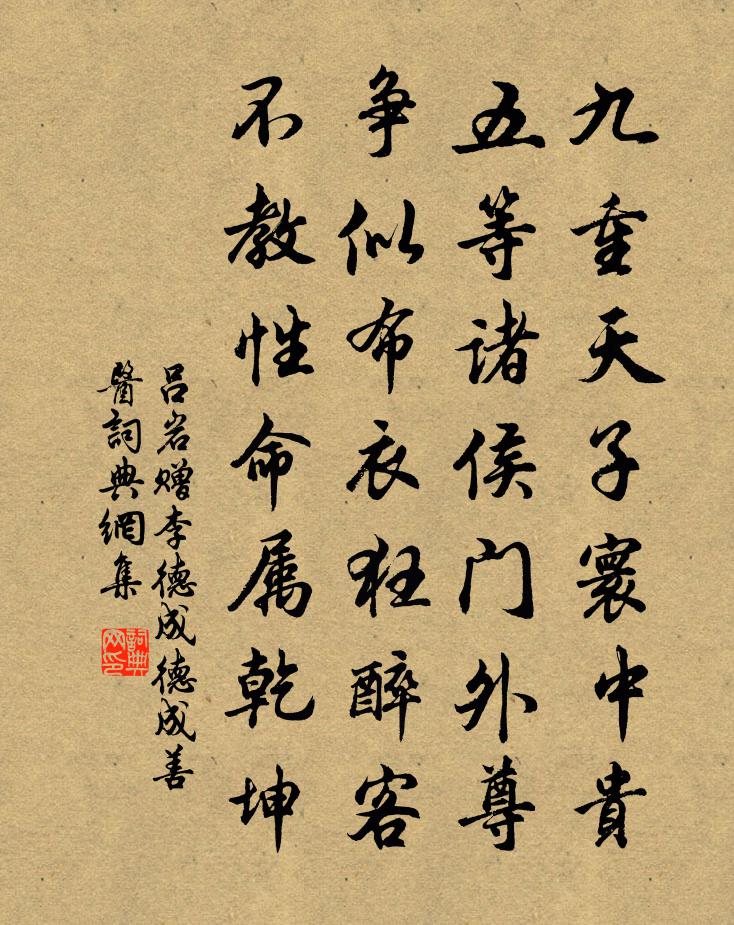 九重天子寰中貴
五等诸侯门外尊
争似布衣狂醉客
不教性命属乾坤
吕岩赠李德成德成善
醫詞典網集
詞典网印